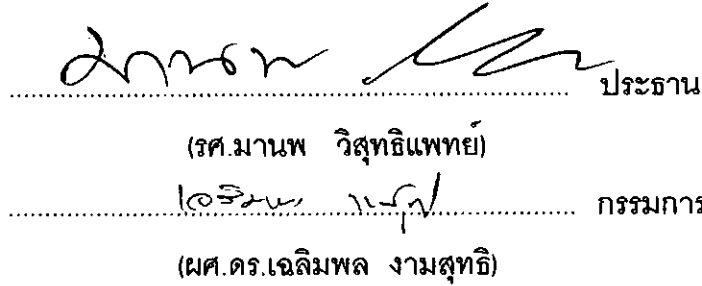 มานพ ประธาน
(รศ.มานพ วิสุทธิแพทย์)
กรรมการ
(ผศ.ดร.เฉลิมพล งามสุทธิ)